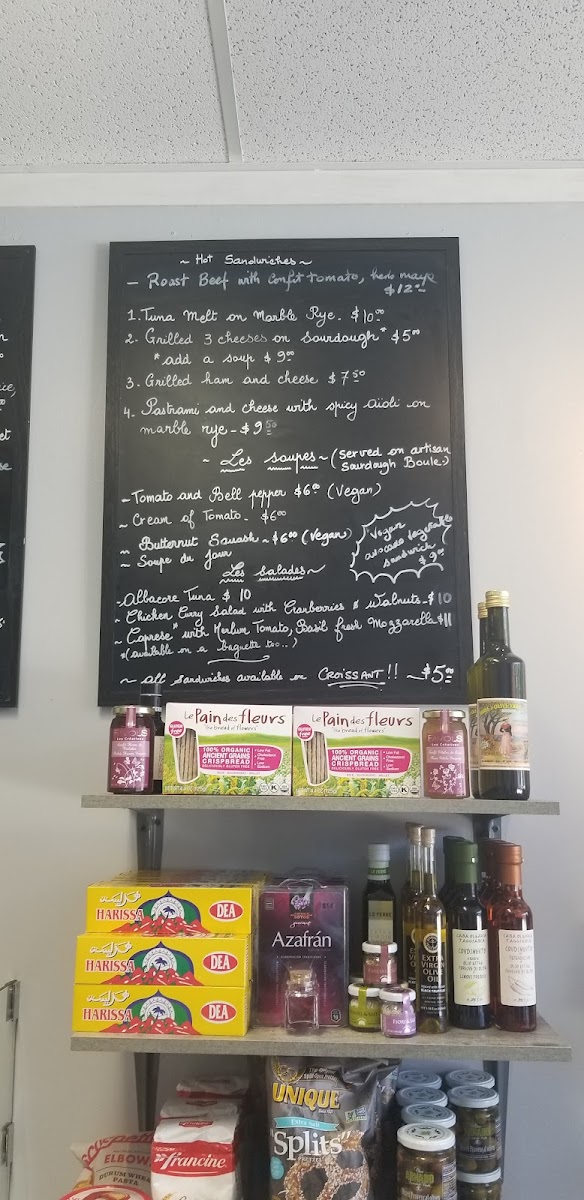 ~ Hot Sandwiches ~
- Roast Beef with Confit tomato, herb mayo
$12.00
1. Tuna Melt on Marble Rye - $10.00
2. Grilled 3 cheeses on Sourdough* $5.00
*add a soup $9.00
3. Grilled ham and cheese $7.50
4. Pastrami and cheese with spicy aïoli on
marble rye - $9.50
~ Les soupes ~ (served on artisan
Sourdough Boule)
~ Tomato and Bell pepper $6.00 (Vegan)
~ Cream of Tomato - $6.00
~ Butternut Squash ~ $6.00 (Vegan)
~ Soupe du Jour
Vegan
avocado vegetable
sandwich
$9.00
Les salades ~
~ Albacore Tuna $10
~ Chicken Curry Salad with Cranberries & walnuts - $10
~ Caprese* with Heirloom Tomato, Basil fresh Mozzarella $11
*(available on a baguette too..)
~ all sandwiches available on CROISSANT!! ~ $5.00
FAVOLS
Le Pain des fleurs
The bread of flowers
gluten free
100% ORGANIC
ANCIENT GRAINS
CRISPBREAD
DELICIOUSLY GLUTEN FREE
Low Fat
Cholesterol
Free
Low
Sodium
Le Pain des fleurs
The bread of flowers
gluten free
100% ORGANIC
ANCIENT GRAINS
CRISPBREAD
DELICIOUSLY GLUTEN FREE
Low Fat
Cholesterol
Free
Low
Sodium
FAVOLS
HARISSA DEA
HARISSA DEA
HARISSA DEA
Azafrán
EXTRA
VIRGIN
OLIVE
OIL
UNIQUE
Extra Salt
"Splits"
PRETZELS
francine
ELBOW
DURUM WHEAT
PASTA